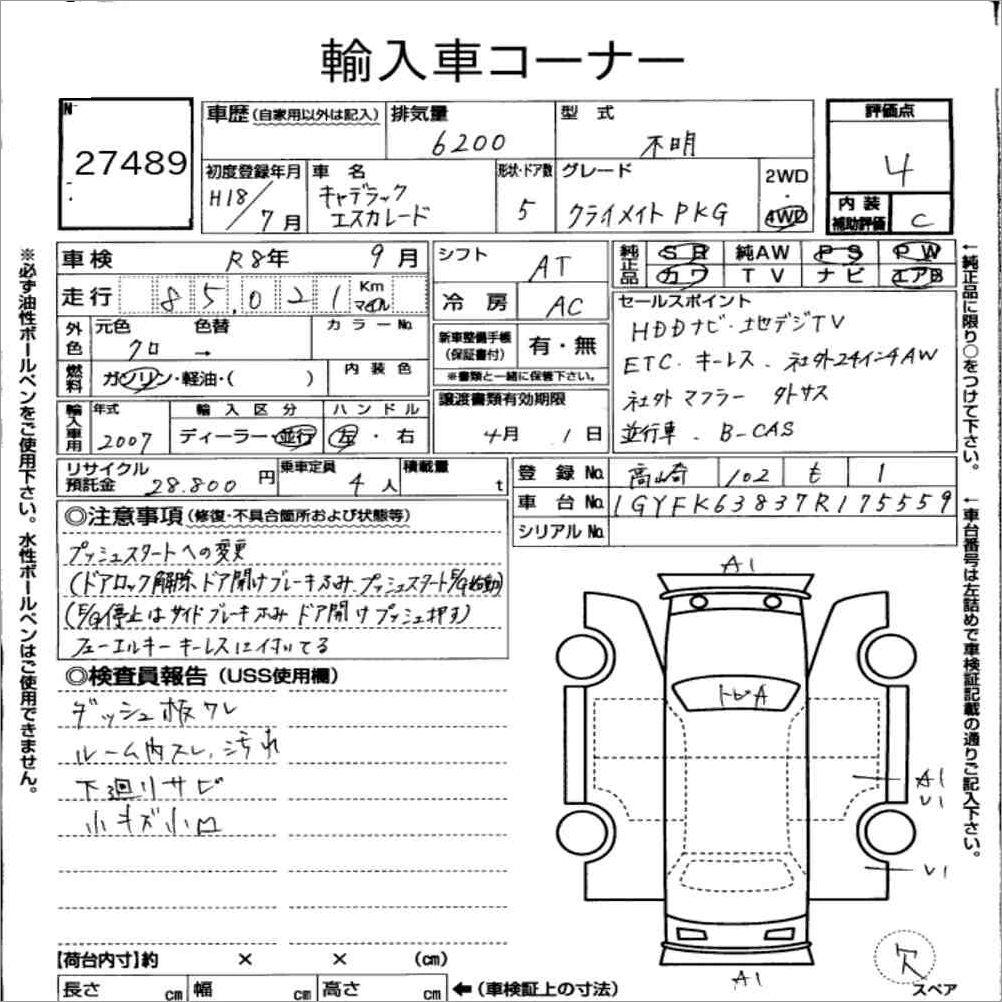 輸入車コーナー
N
27489
車歴 (自家用以外は記入)
排気量
6200
型 式
不明
評価点
4
初度登録年月
H18/7月
車 名
キャデラック
エスカレード
形状・ドア数
5
グレード
クライメイトPKG
2WD
・
4WD
内 装
補助評価
C
車検
R8年 9月
シフト
AT
純正品
SR 純AW PS PW
カワ TV ナビ エアB
走行
85,021
Km
マイル
冷 房
AC
セールスポイント
HDDナビ・地デジTV
ETC. キーレス. 社外24インチAW
社外マフラー 外サス
並行車. B-CAS
外色
元色 色替
クロ →
カラーNo.
新車整備手帳
(保証書付)
有・無
※書類と一緒に保管下さい。
燃料
ガソリン・軽油・( )
内 装 色
譲渡書類有効期限
4月 1日
輸入車用
年式
2007
輸 入 区 分
ディーラー・並行
ハ ン ド ル
左・右
リサイクル
預託金 28.800 円
乗車定員
4人
積載量
t
登 録 No. 高崎 102 も 1
車 台 No. 1GYFK63837R175559
シリアル No.
◎注意事項 (修復・不具合箇所および状態等)
プッシュスタートへの変更
(ドアロック解除、ドア開けブレーキふみ プッシュスタートE/G始動)
(E/G停止はサイドブレーキふみ ドア開けプッシュ押す)
フューエルキー キーレスに付いてる
◎検査員報告 (USS使用欄)
ダッシュ板ワレ
ルーム内スレ、汚れ
下廻りサビ
小キズ小凹
A1
トビA
A1
U1
U1
A1
欠
スペア
【荷台内寸】約 × × (cm)
長さ cm 幅 cm 高さ cm ← (車検証上の寸法)
※必ず油性ボールペンをご使用下さい。水性ボールペンはご使用できません。
←純正品に限り○をつけて下さい。
←車台番号は左詰めで車検証記載の通りご記入下さい。